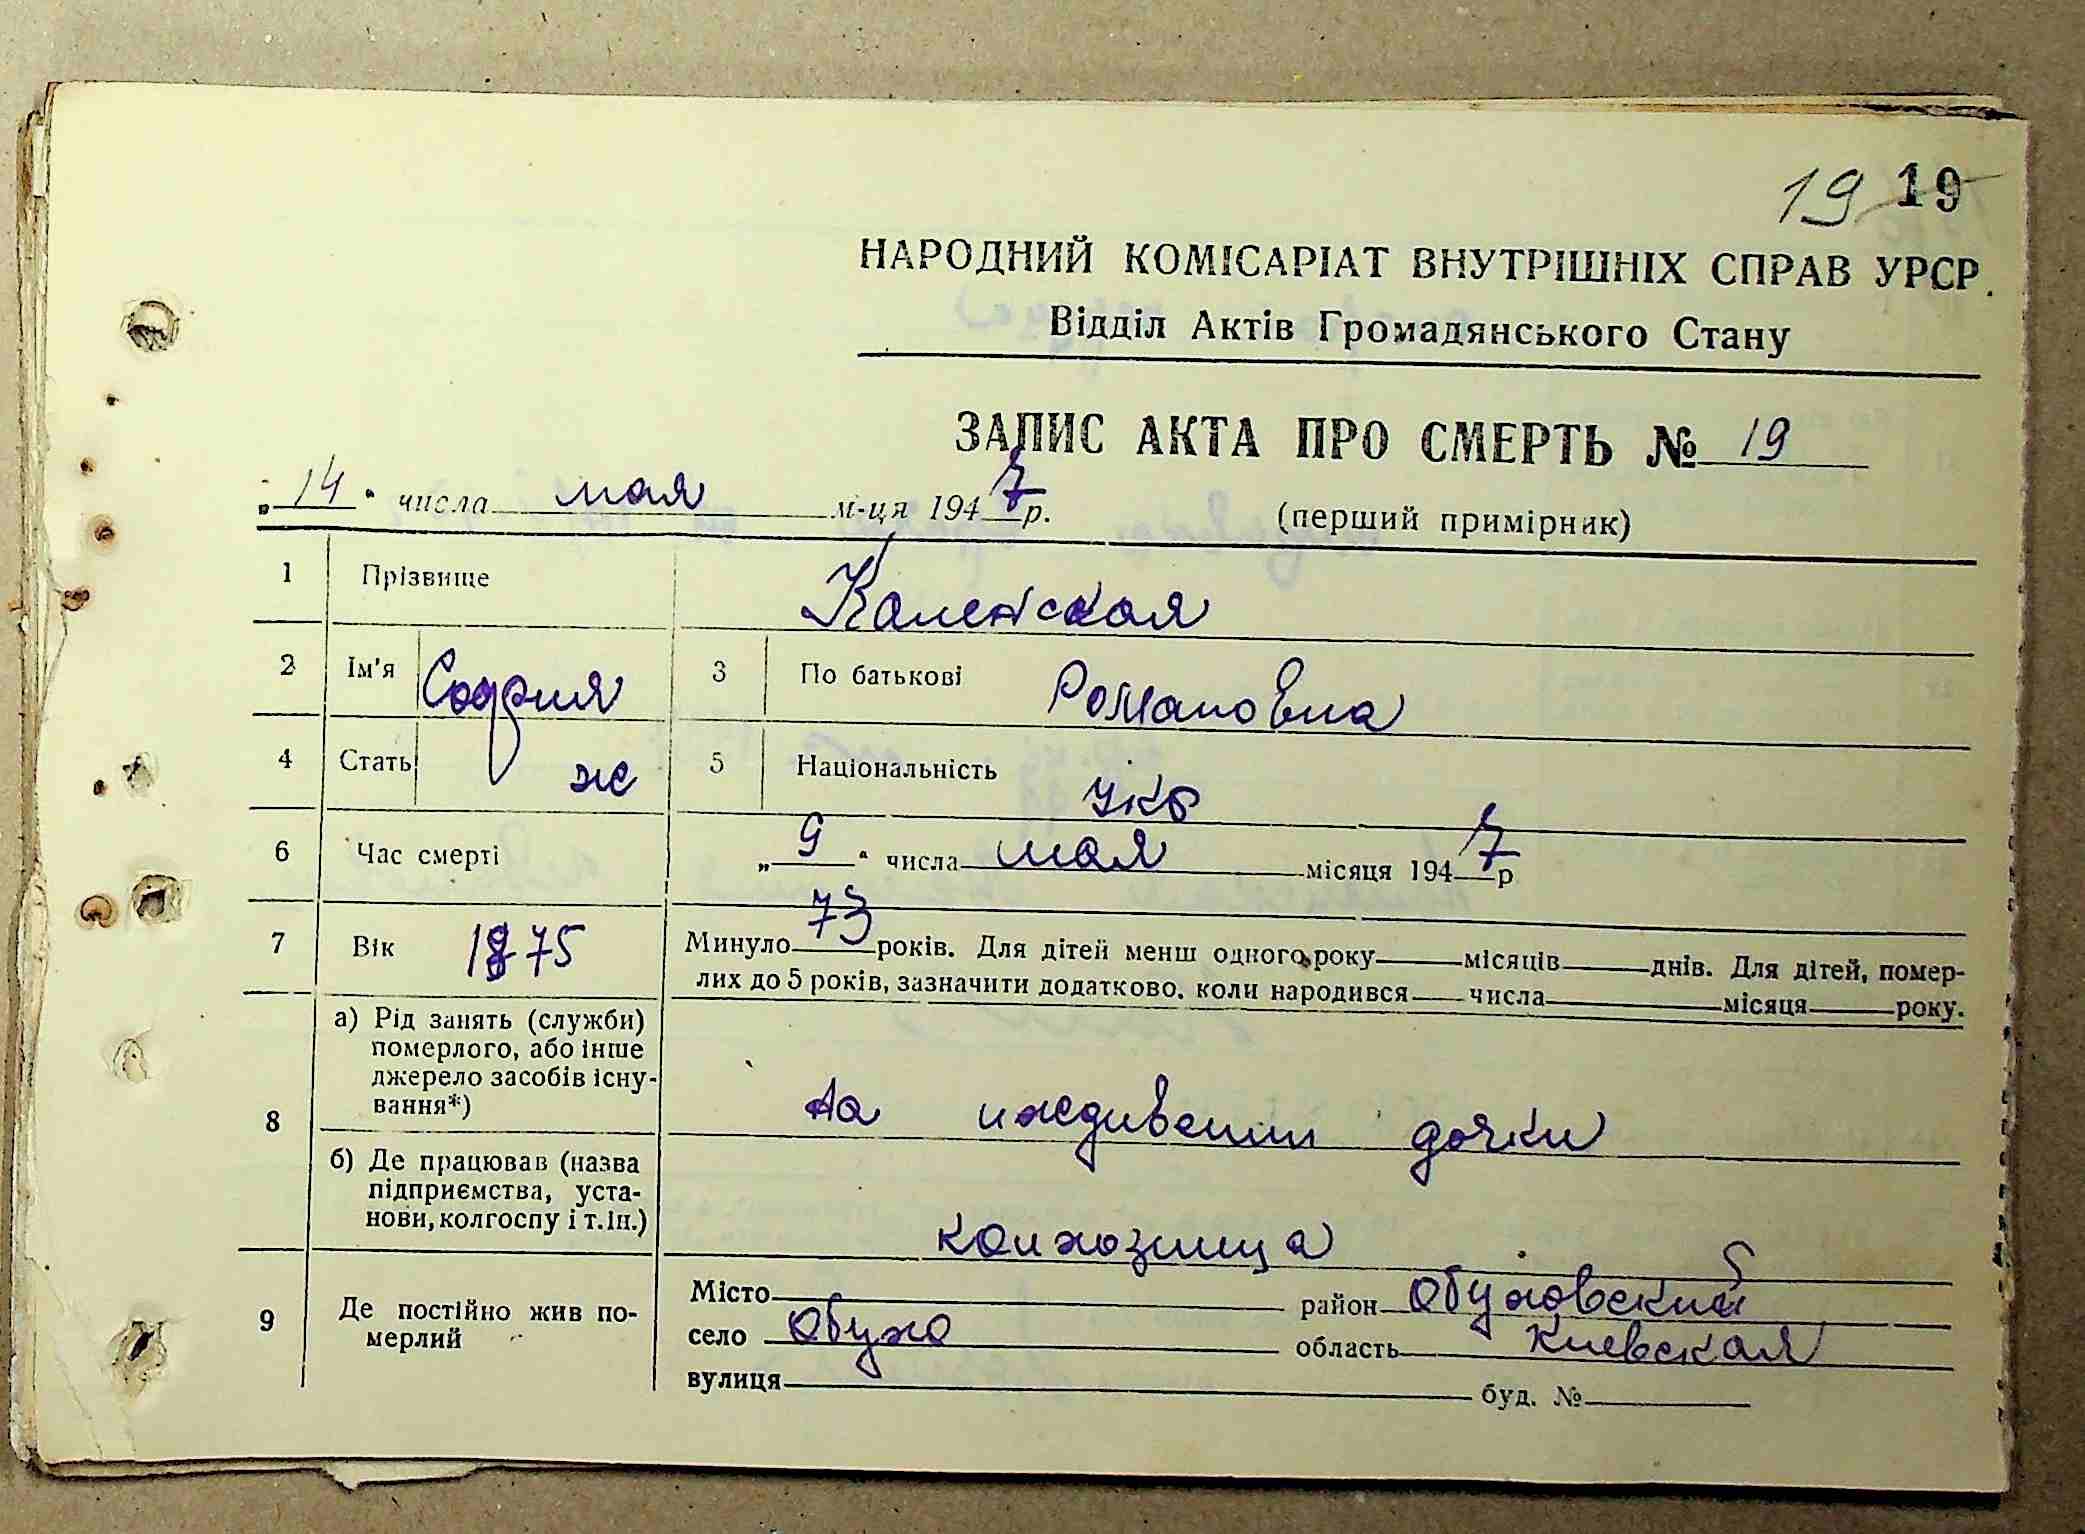 19 19
НАРОДНИЙ КОМІСАРІАТ ВНУТРІШНІХ СПРАВ УРСР.
Відділ Актів Громадянського Стану
ЗАПИС АКТА ПРО СМЕРТЬ № 19
„14“ числа мая м-ця 1947 р. (перший примірник)
1 Прізвище Каленская
2 Ім'я София 3 По батькові Романовна
4 Стать ж 5 Національність укр
6 Час смерті „9“ числа мая місяця 1947 р
7 Вік 1875 Минуло 73 років. Для дітей менш одного року місяців днів. Для дітей, помер-
лих до 5 років, зазначити додатково, коли народився числа місяця року.
8 а) Рід занять (служби)
померлого, або інше
джерело засобів існу-
вання*)
на иждивении дочки
б) Де працював (назва
підприємства, уста-
нови, колгоспу і т.ін.)
колхозница
9 Де постійно жив по-
мерлий
Місто район Обуховский
село Обухо область Киевская
вулиця буд. №